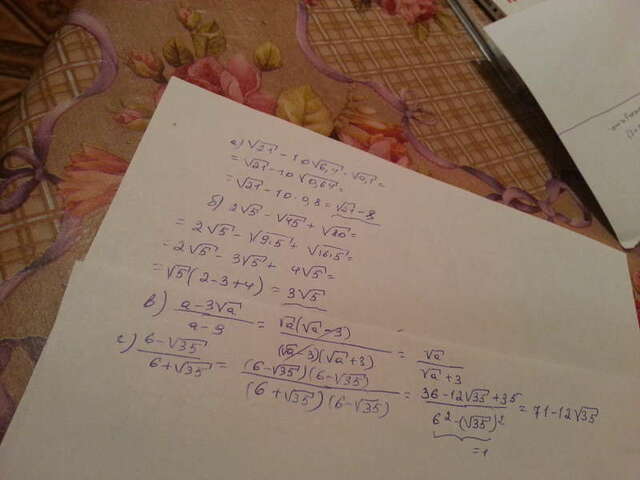 а) √21 - 10√6,4 · √0,1 =
= √21 - 10√0,64 =
= √21 - 10 · 0,8 = √21 - 8
б) 2√5 - √45 + √80 =
= 2√5 - √9·5 + √16·5 =
= 2√5 - 3√5 + 4√5 =
= √5 (2-3+4) = 3√5
в) (a-3√a)/(a-9) = √a(√a-3)/((√a-3)(√a+3)) = √a/(√a+3)
с) (6-√35)/(6+√35) = (6-√35)(6-√35)/((6+√35)(6-√35)) = (36-12√35+35)/(6²-(√35)²) = 71-12√35
=1